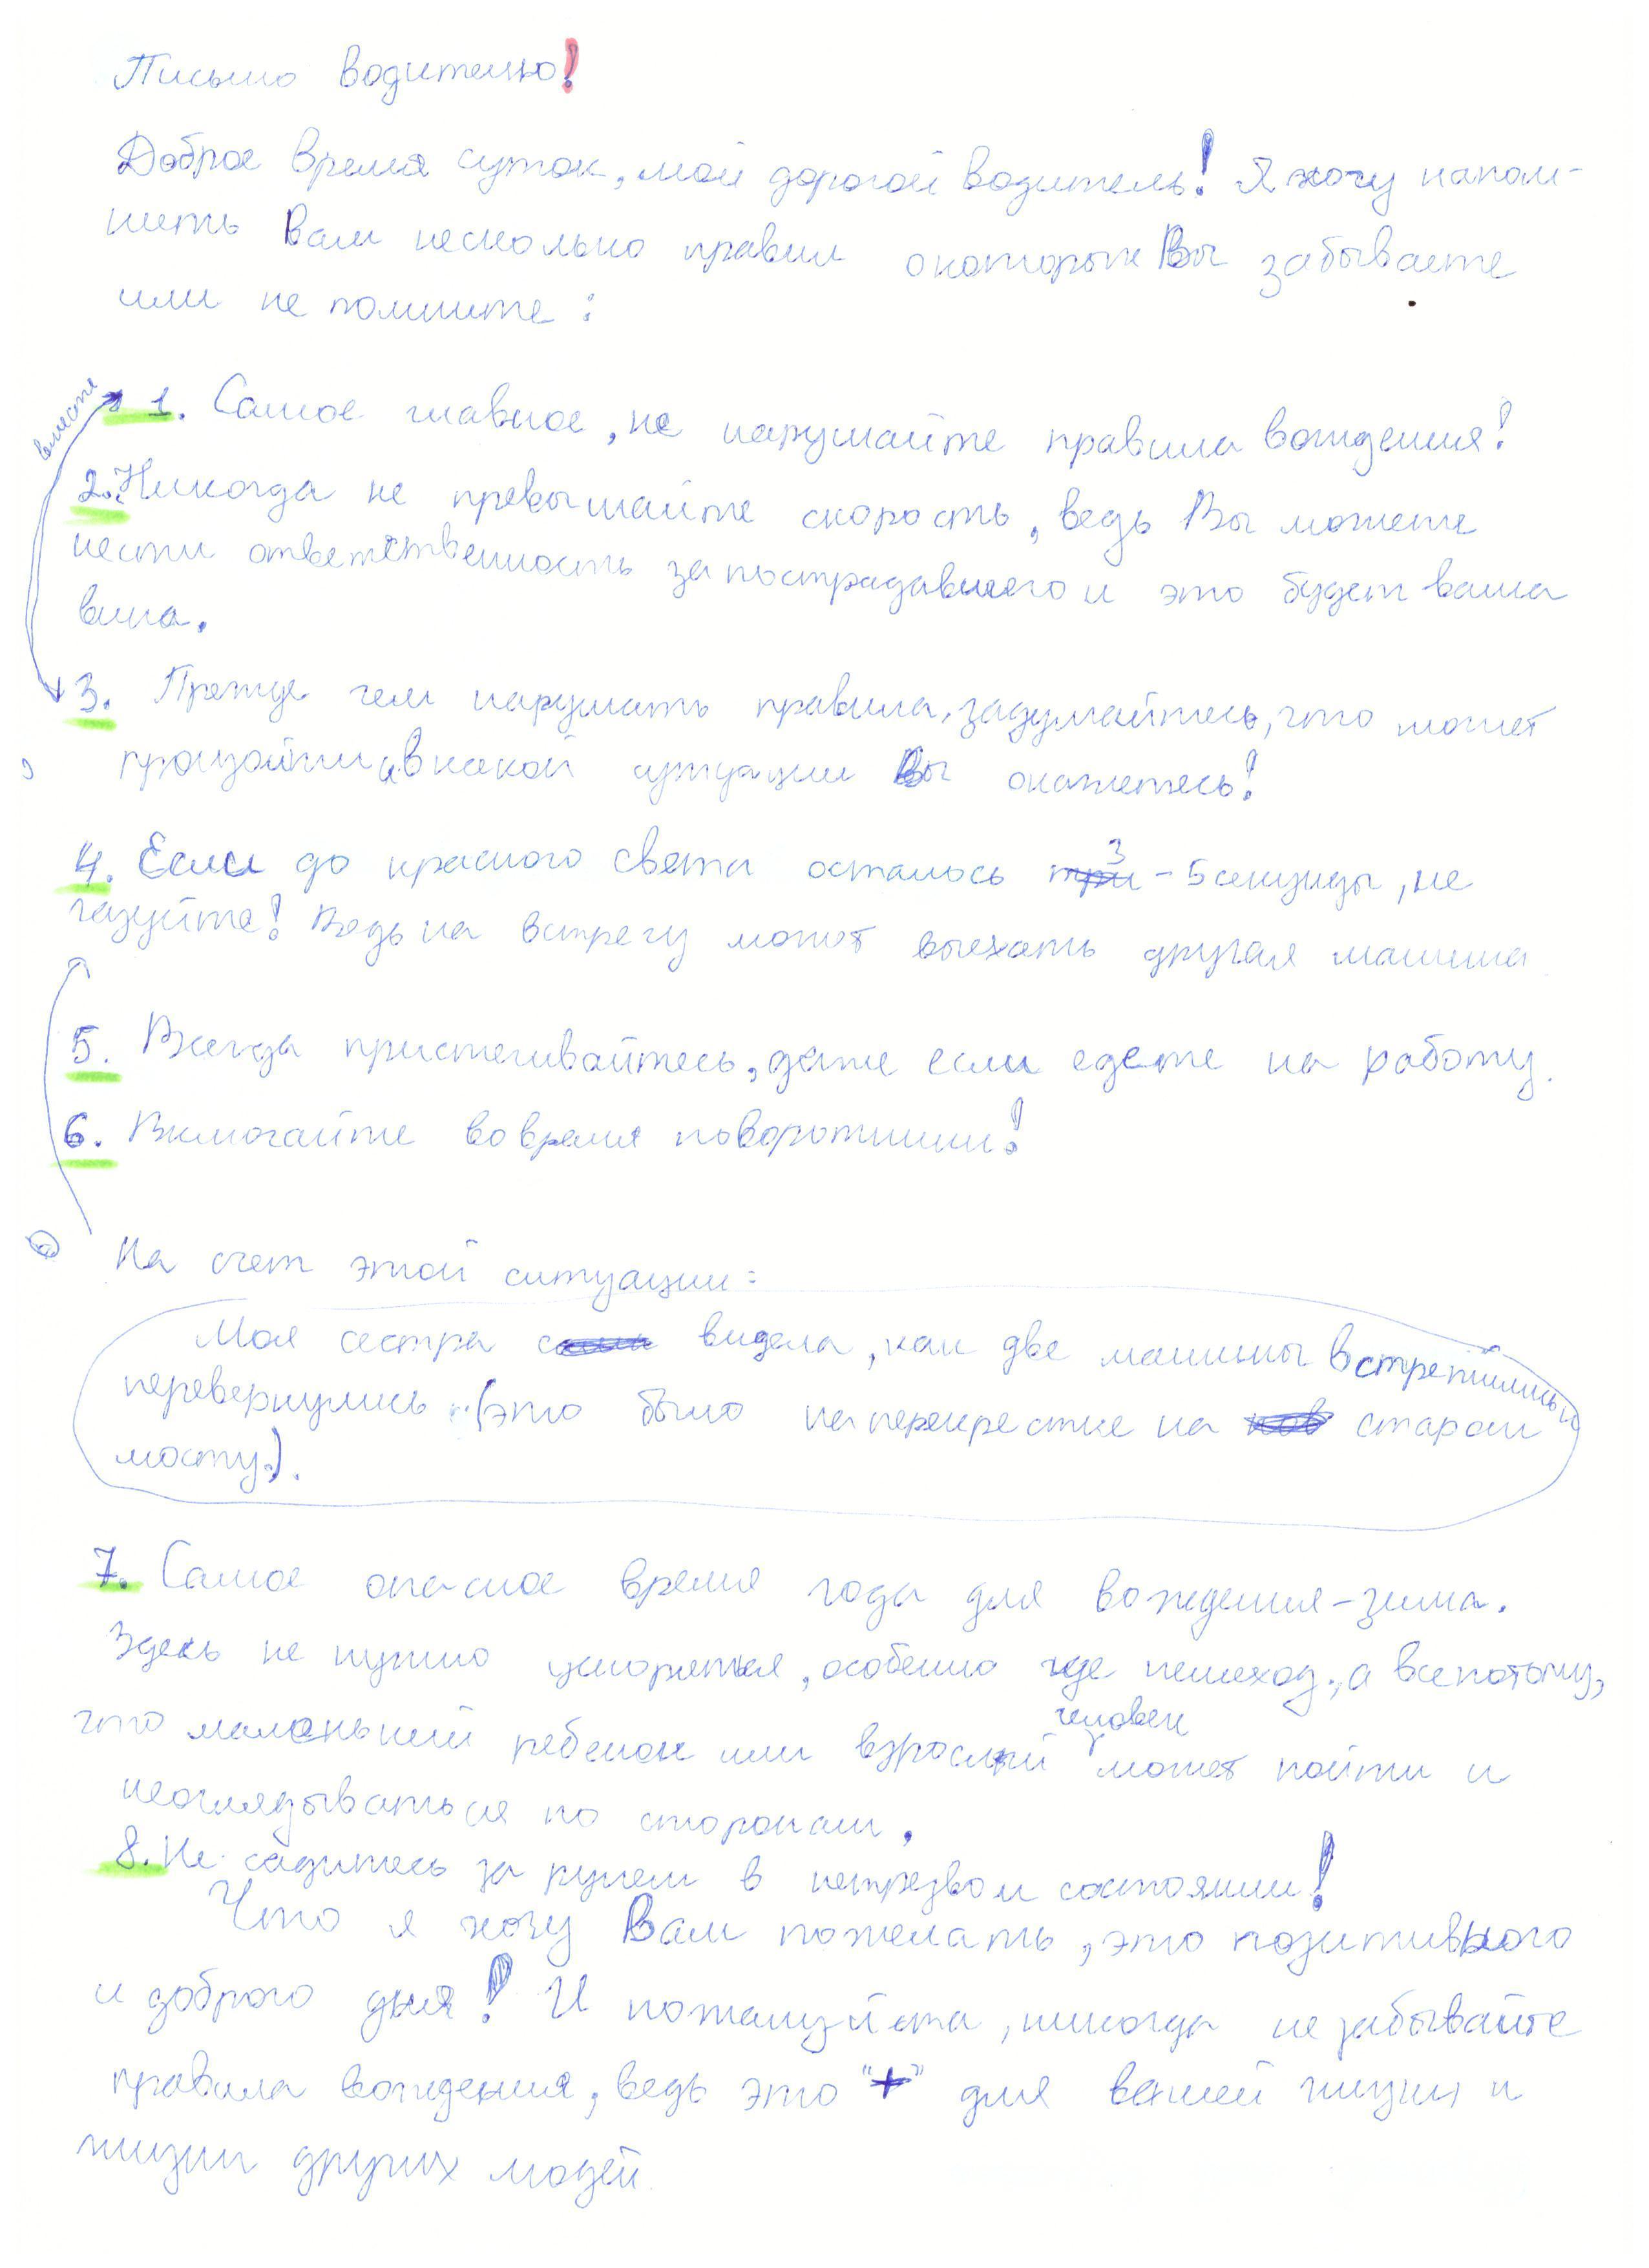 Письмо водителю!
Доброе время суток, мой дорогой водитель! Я хочу напом-
нить Вам несколько правил о которых Вы забываете
или не помните:
вместе
1. Самое главное, не нарушайте правила вождения!
2. Никогда не превышайте скорость, ведь Вы можете
нести ответственность за пострадавшего и это будет ваша
вина.
3. Прежде чем нарушать правила, задумайтесь, что может
произойти и в какой ситуации Вы окажетесь!
4. Если до красного света осталось 3 - 5 секунды, не
газуйте! Ведь на встречу может выехать другая машина
5. Всегда пристегивайтесь, даже если едете на работу.
6. Включайте во время поворотники!
На счет этой ситуации:
Моя сестра видела, как две машины встретились и
перевернулись (это было на перекрестке на старом
мосту.).
7. Самое опасное время года для вождения - зима.
Здесь не нужно ускоряться, особенно где пешеход., а все потому,
что маленький ребенок или взрослый человек может пойти и
неоглядываться по сторонам.
8. Не садитесь за рулем в нетрезвом состоянии!
Что я хочу Вам пожелать, это позитивного
и доброго дня! И пожалуйста, никогда не забывайте
правила вождения, ведь это "+" для вашей жизни и
жизни других людей.